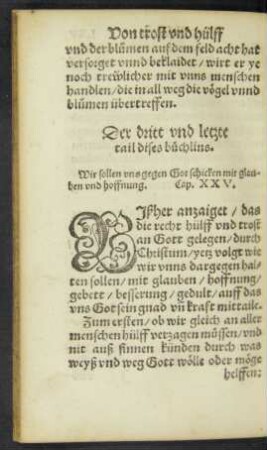 Von trost vnd hülff
vnd der blůmen auf dem feld acht hat
versorget vnnd beklaidet / wirt er ye
noch trewlicher mit vnns menschen
handlen / die in all weg die vögel vnnd
blůmen übertreffen.
Der dritt vnd letzte
tail dises bůchlins.
Wir sollen vns gegen Got schicken mit glau-
ben vnd hoffnung. Cap. XXV.
BIßher anzaiget / das
die recht hülff vnd trost
an Gott gelegen / durch
Christum / yetz volgt wie
wir vnns dargegen hal-
ten sollen / mit glauben / hoffnung /
gebett / besserung / gedult / auff das
vns Got sein gnad vñ krafft mittaile.
Zum ersten / ob wir gleich an aller
menschen hülff verzagen müssen / vnd
nit auß sinnen künden durch was
weyß vnd weg Gott wölle oder möge
helffen: